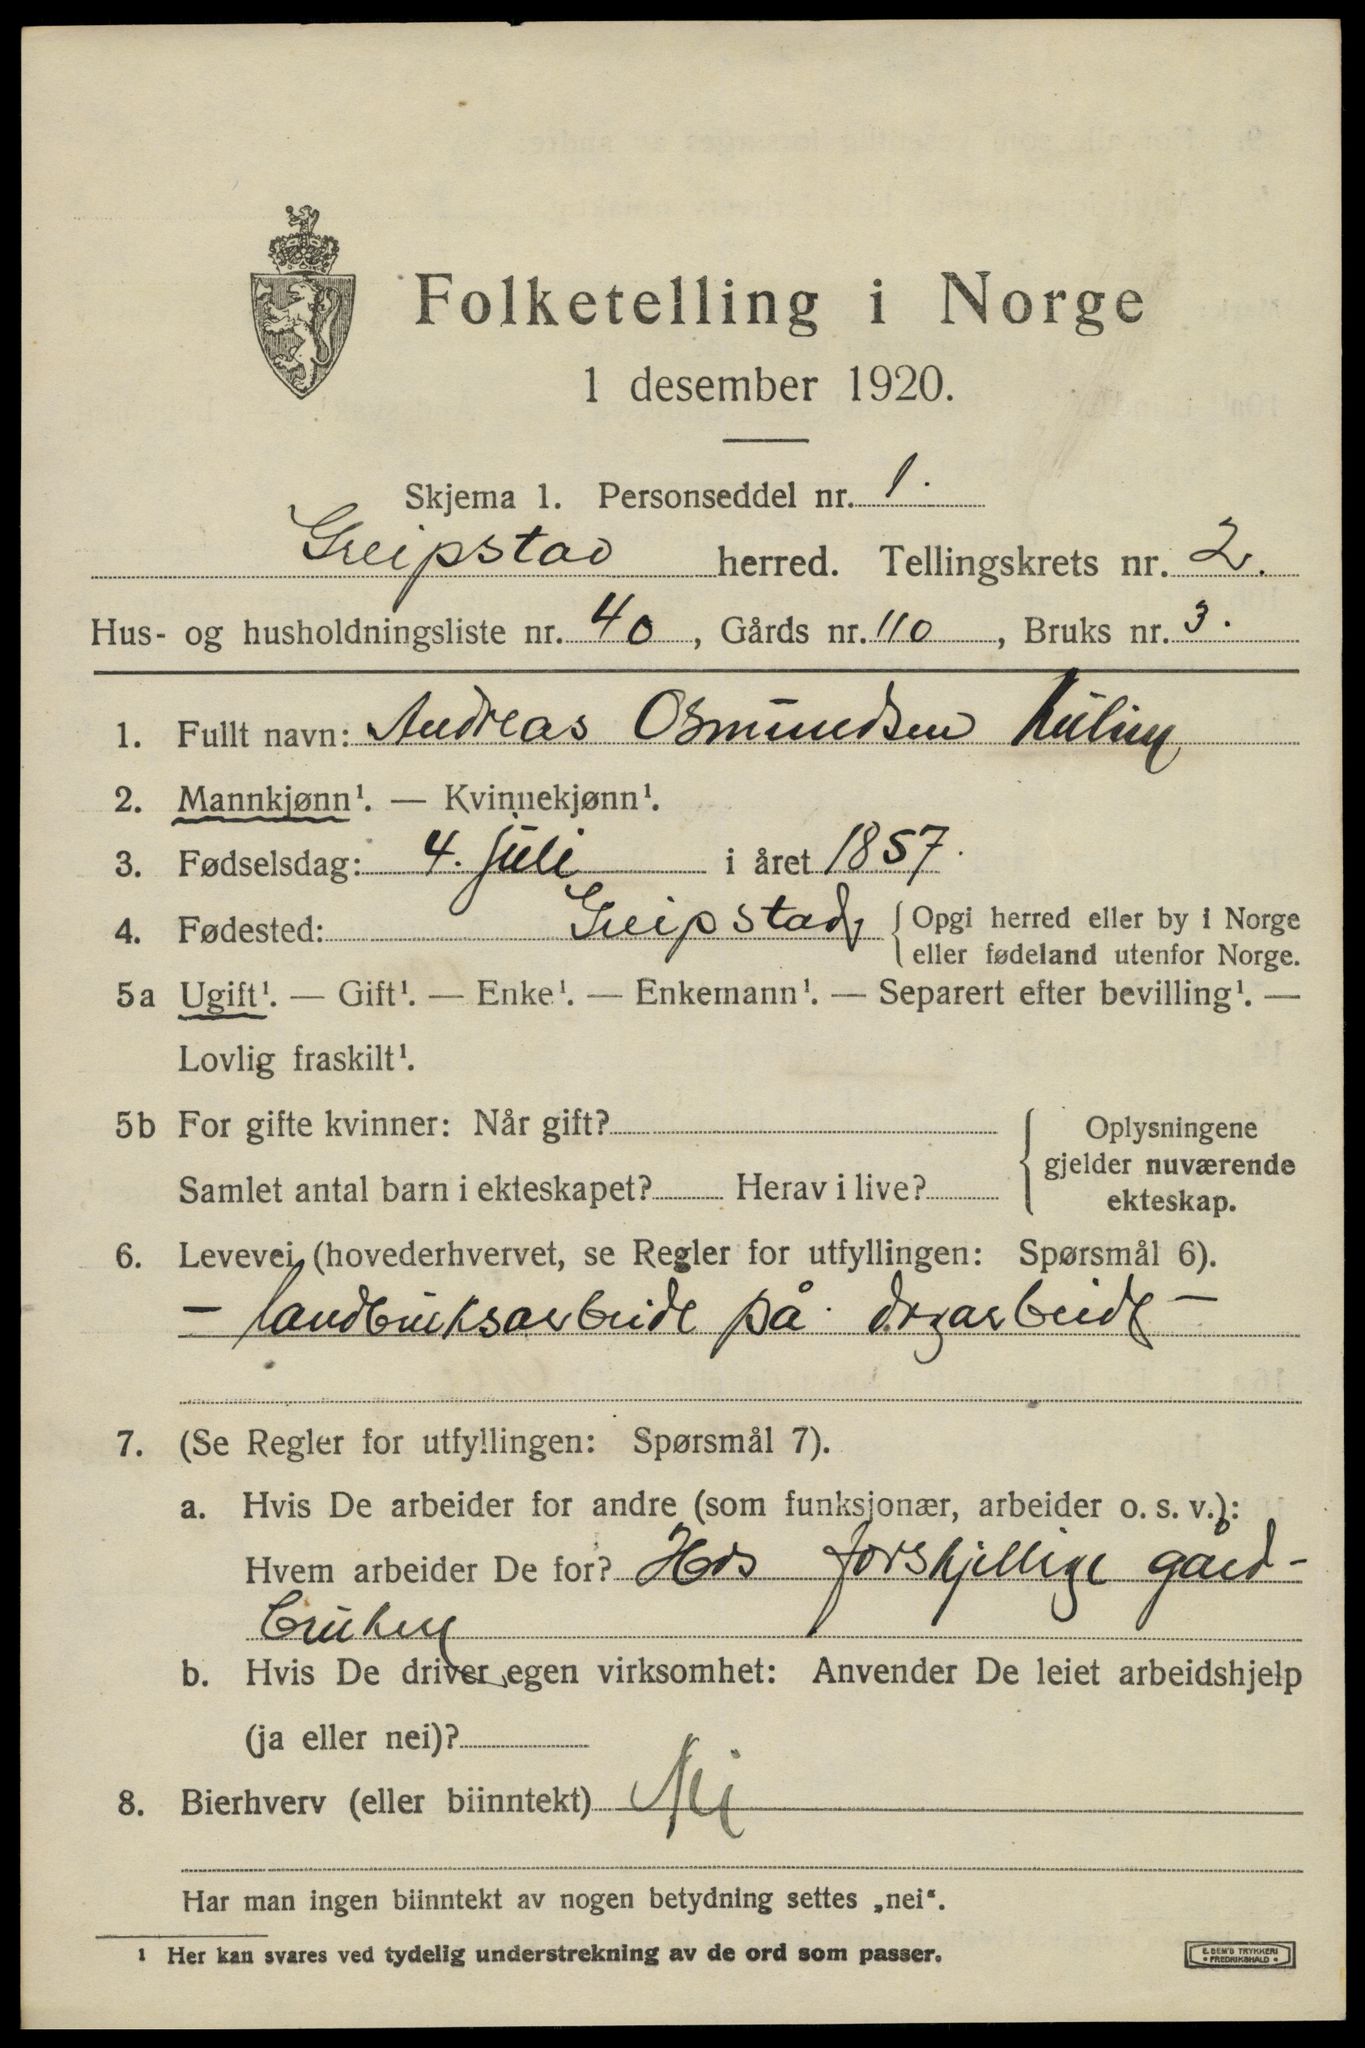 Folketelling i Norge
1 desember 1920.
Skjema 1. Personseddel nr. 1.
Greipstad herred. Tellingskrets nr. 2.
Hus- og husholdningsliste nr. 40, Gårds nr. 110, Bruks nr. 3.
1. Fullt navn: Andreas Osmundsen
2. Mannkjønn¹. — Kvinnekjønn¹.
3. Fødselsdag: 4. juli i året 1857.
4. Fødested: Greipstad { Opgi herred eller by i Norge
eller fødeland utenfor Norge.
5a Ugift¹. — Gift¹. — Enke¹. — Enkemann¹. — Separert efter bevilling¹. —
Lovlig fraskilt¹.
5b For gifte kvinner: Når gift? { Oplysningene
gjelder nuværende
Samlet antal barn i ekteskapet? Herav i live?
ekteskap.
6. Levevei (hovederhvervet, se Regler for utfyllingen: Spørsmål 6).
— landbruksarbeide på dagarbeide —
7. (Se Regler for utfyllingen: Spørsmål 7).
a. Hvis De arbeider for andre (som funksjonær, arbeider o. s. v.):
Hvem arbeider De for? Hos forskjellige gård-
brukere
b. Hvis De driver egen virksomhet: Anvender De leiet arbeidshjelp
(ja eller nei)?
8. Bierhverv (eller biinntekt) Nei
Har man ingen biinntekt av nogen betydning settes „nei“.
¹ Her kan svares ved tydelig understrekning av de ord som passer.
E. SEM'S TRYKKERI
• FREDRIKSHALD •